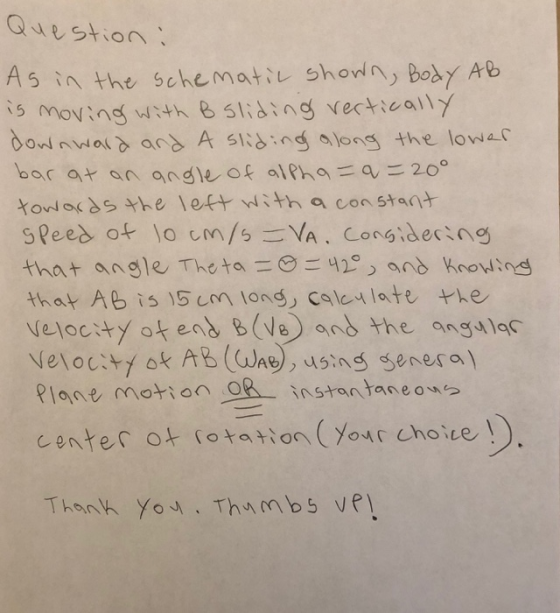 Question:
As in the schematic shown, Body AB
is moving with B sliding vertically
downward and A sliding along the lower
bar at an angle of alpha = α = 20°
towards the left with a constant
speed of 10 cm/s = VA. Considering
that angle Theta = θ = 42°, and knowing
that AB is 15 cm long, calculate the
velocity of end B (VB) and the angular
velocity of AB (WAB), using general
plane motion OR instantaneous
center of rotation (your choice!).
Thank you. Thumbs UP!